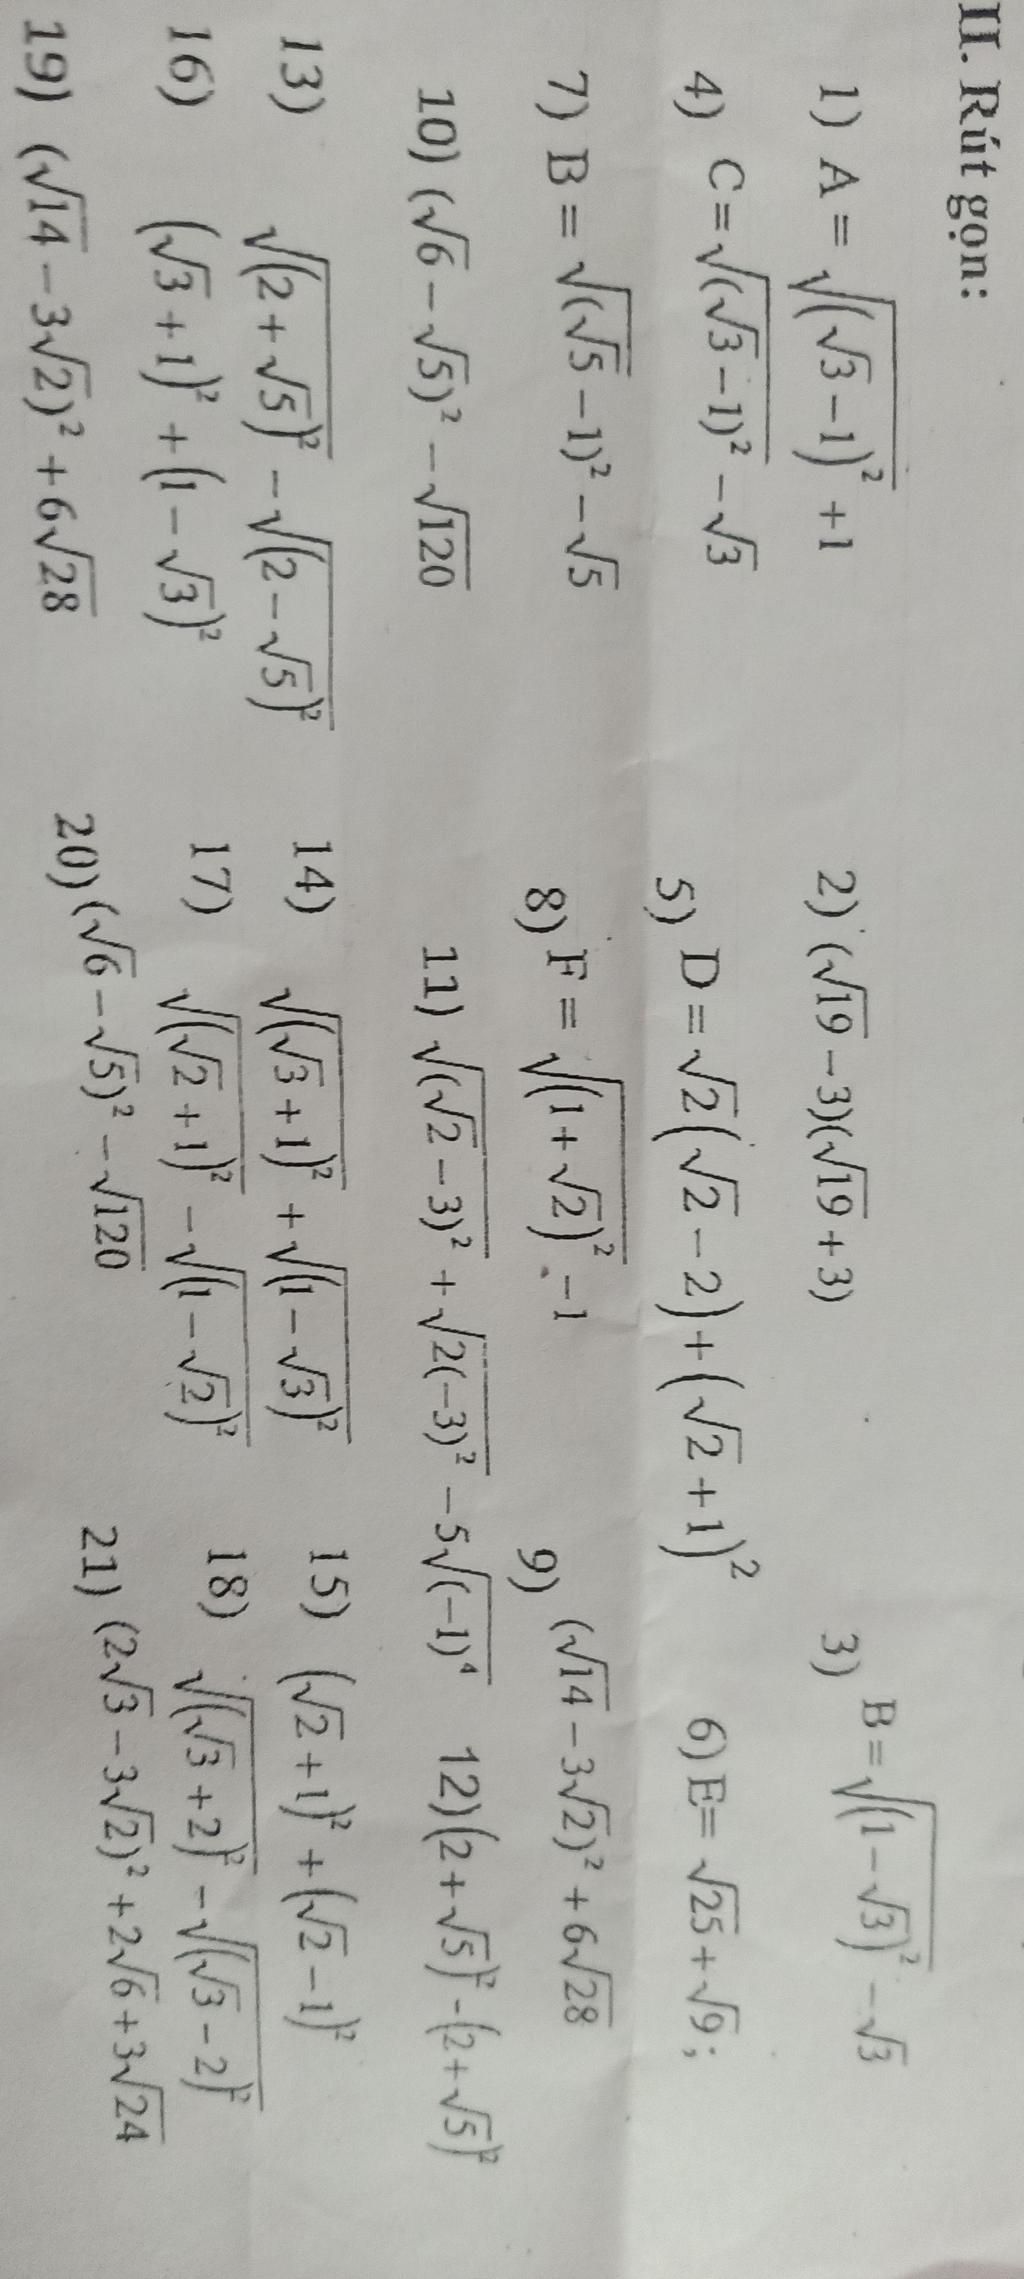 II. Rút gọn:
1) A = √((√3 − 1)²) + 1 2) (√19 − 3)(√19 + 3) 3) B = √((1 − √3)²) − √3
4) C = √((√3 − 1)²) − √3 5) D = √2(√2 − 2) + (√2 + 1)² 6) E = √25 + √9 ;
7) B = √((√5 − 1)²) − √5 8) F = √((1 + √2)²) − 1 9) (√14 − 3√2)² + 6√28
10) (√6 − √5)² − √120 11) √((√2 − 3)²) + √(2(−3)²) − 5√((−1)⁴) 12) (2 + √5)² - (2 + √5)²
13) √((2 + √5)²) − √((2 − √5)²) 14) √((√3 + 1)²) + √((1 − √3)²) 15) (√2 + 1)² + (√2 − 1)²
16) (√3 + 1)² + (1 − √3)² 17) √((√2 + 1)²) − √((1 − √2)²) 18) √((√3 + 2)²) − √((√3 − 2)²)
19) (√14 − 3√2)² + 6√28 20) (√6 − √5)² − √120 21) (2√3 − 3√2)² + 2√6 + 3√24